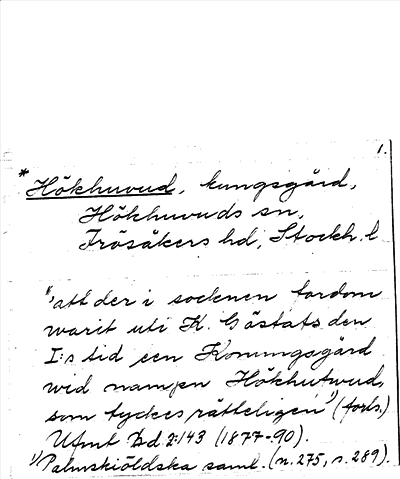 1.
*Hökhuvud, kungsgård,
Hökhuvuds sn,
Frösåkers hd, Stockh. l
"att der i socknen fordom
warit uti K. Göstafs den
I:s tid een Konungsgård
wid nampn Hökhutwud,
som tyckes rätteligen"¹) (forts.)
Utmt Bd. 2:143 (1877-90).
¹) Palmskiöldska saml. (n. 275, s. 289).